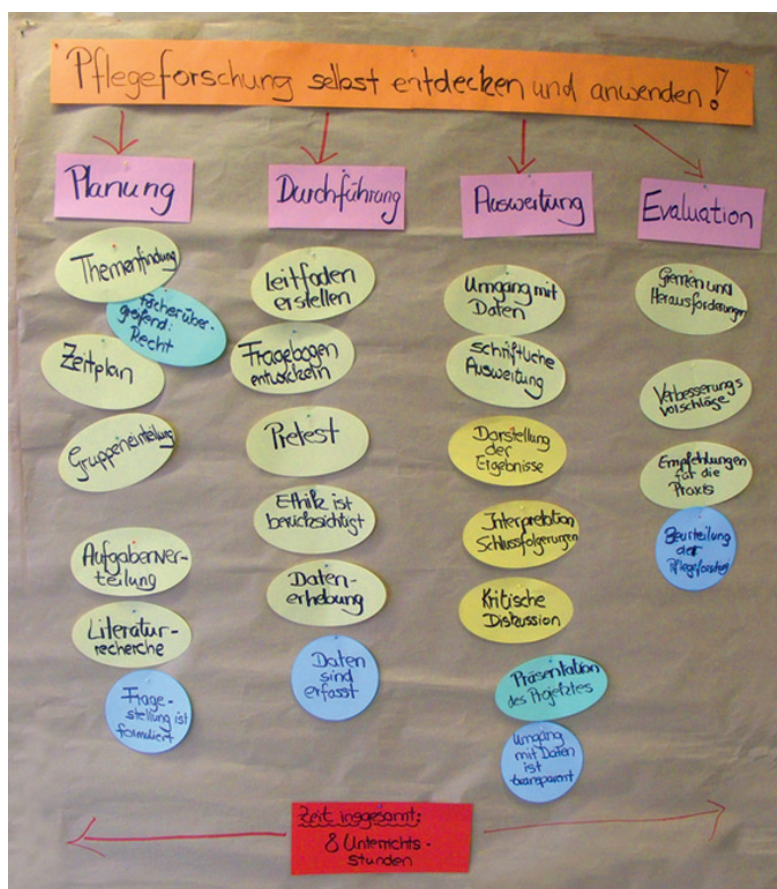 Pflegeforschung selbst entdecken und anwenden!
Planung
Themenfindung
Fächerüber-
greifend:
Recht
Zeitplan
Gruppeneinteilung
Aufgabenver-
teilung
Literatur-
recherche
Frage-
stellung ist
formuliert
Durchführung
Leitfaden
erstellen
Fragebogen
entwickeln
Pretest
Ethik ist
berücksichtigt
Daten-
erhebung
Daten
sind
erfasst
Auswertung
Umgang mit
Daten
schriftliche
Auswertung
Darstellung
der
Ergebnisse
Interpretation
Schlussfolgerungen
Kritische
Diskussion
Präsentation
des Projektes
Umgang
mit Daten
ist
transparent
Evaluation
Grenzen und
Herausforderungen
Verbesserungs
vorschläge
Empfehlungen
für die
Praxis
Beurteilung
der
Pflegeforschung
Zeit insgesamt:
8 Unterrichts-
stunden